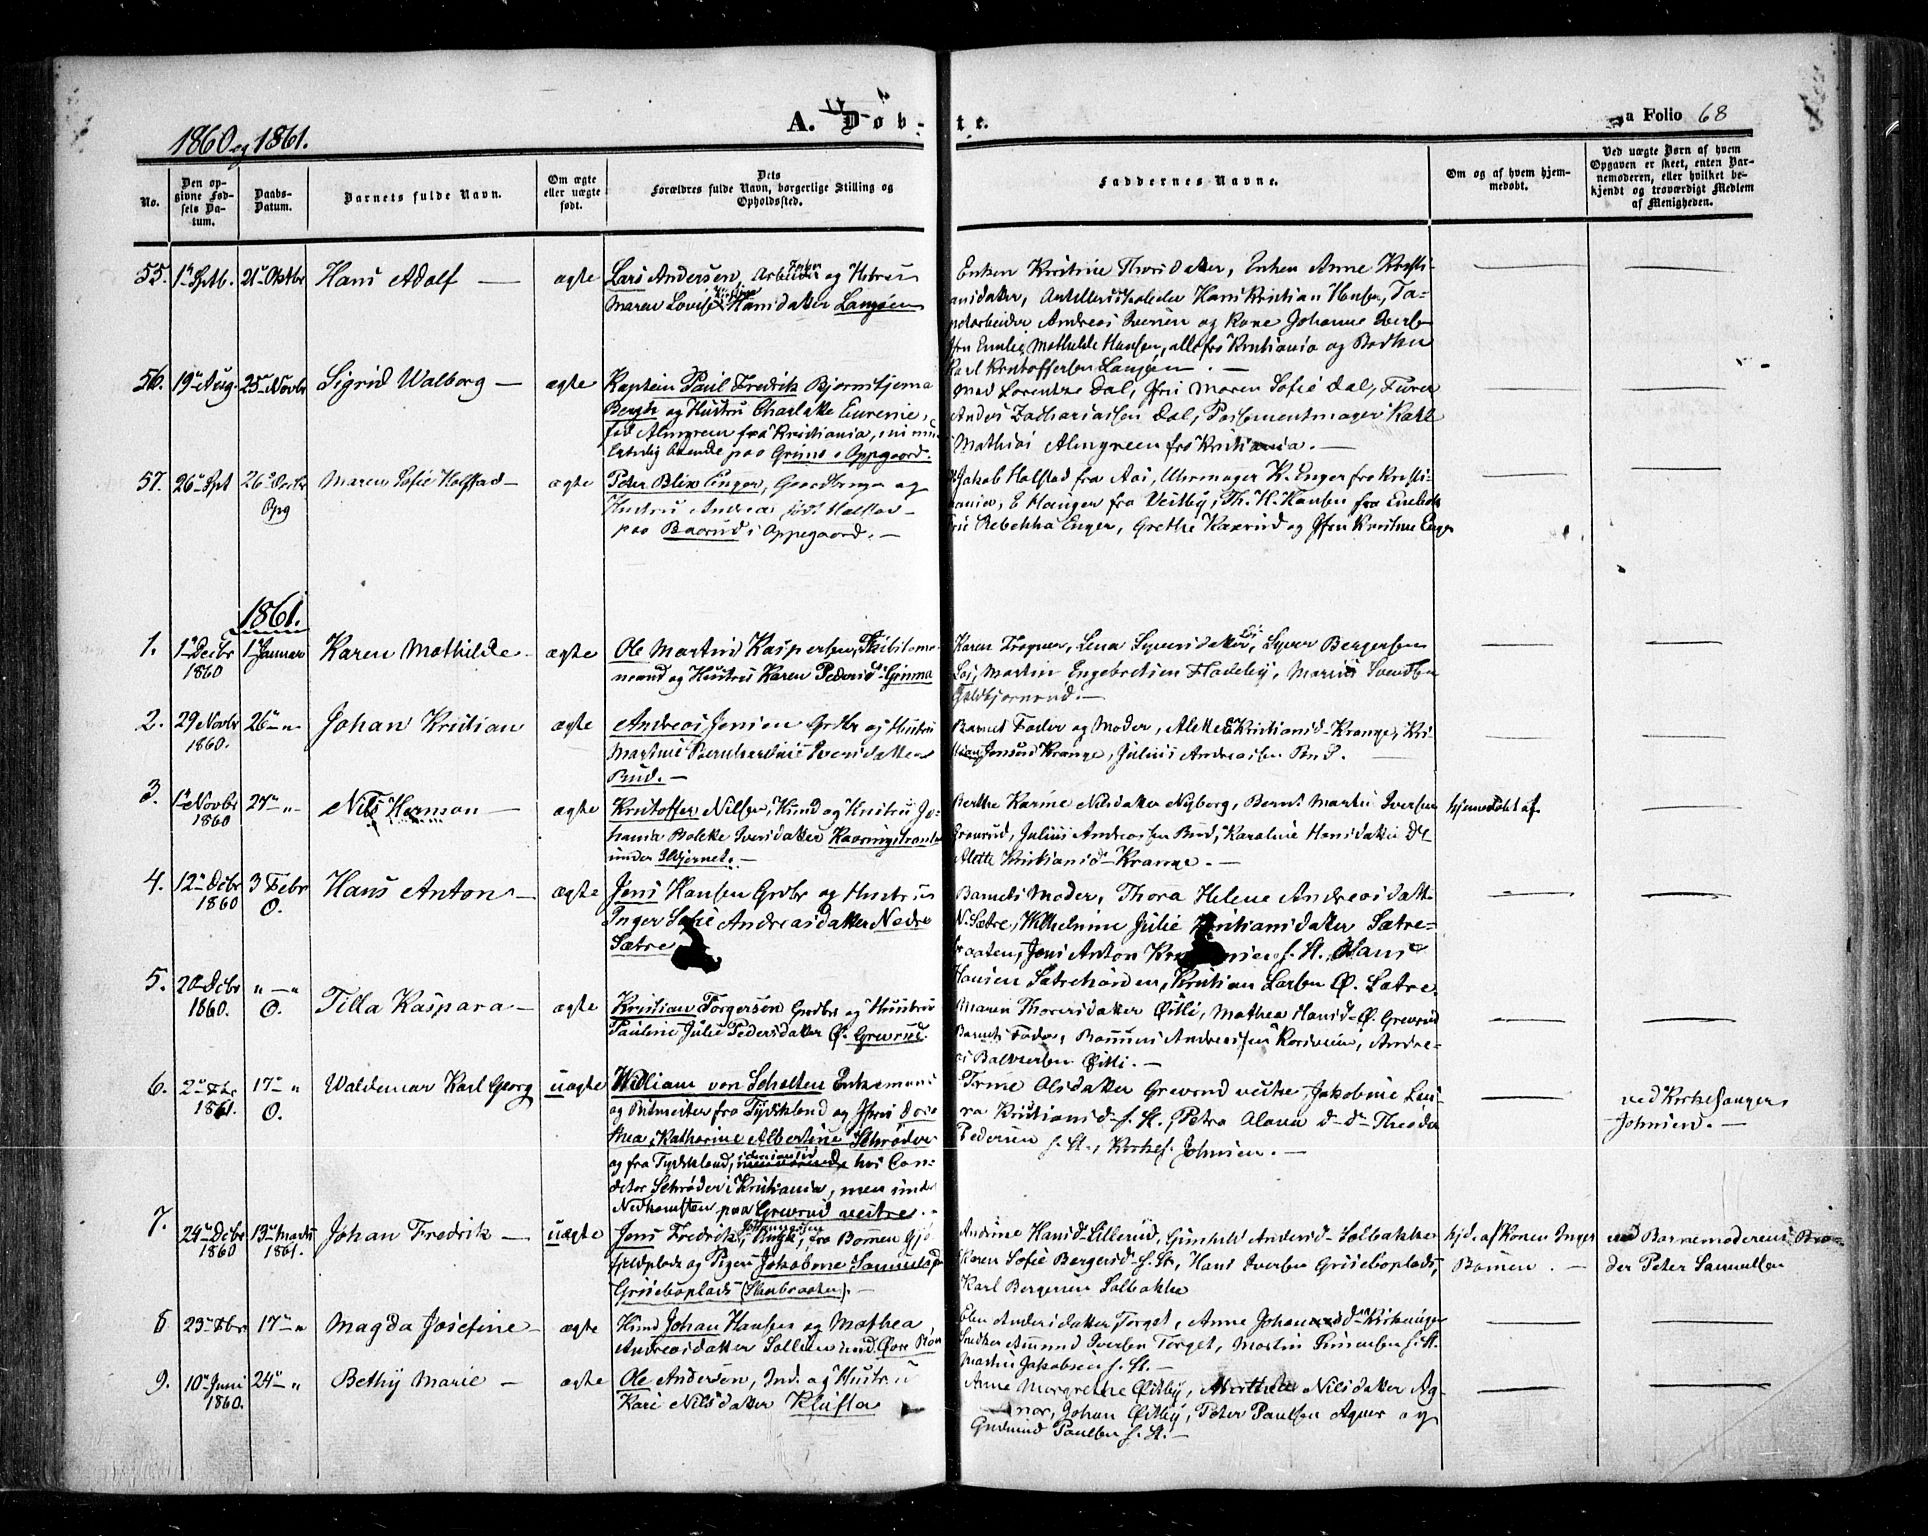 A. Døb-te.
Folio 68
1860 og 1861.
No.
Den op-
givne Fød-
sels Da-
tum.
Daabs-
Datum.
Barnets fulde Navn.
Om ægte
eller uægte
født.
Dets
Forældres fulde Navn, borgerlige Stilling og
Opholdssted.
Faddernes Navne.
Om og af hvem hjem-
medøbt.
Ved uægte Børn af hvem
Opgaven er skeet, enten Bar-
nemoderen, eller hvilket be-
kjendt og troværdigt Medlem
af Menigheden.
55. 1ste Sptb. 21de Oktbr Hans Adolf — ægte
Lars Andersen, Arbeider og Hustru
Maren Lovise Hansdatter Langøen
Enken Kristine Thorsdatter, Enken Anne Kristi-
ansdatter, Hans Kristian Hansen, Ta-
petarbeider Andreas Iversen og Kone Johanne Iversen
Jfru Emilie Mathilde Hansen, alle fra Kristiania og Bødker
Karl Kristoffersen Langøen. —
56. 19de Aug. 25de Novbr Sigrid Walborg — ægte
Kaptein Paul Fredrik Bjørnstjerna
Bergh og Hustru Charlotte Eugenie,
fød Almgreen fra Kristiania, nu mid-
lertidig boende paa Grims i Oppegaard.
Mad Lorentze Dal, Jfru Maren Sofie Dal,
Anders Zachariassen Dal, Possementmager Karl
Mathias Almgreen fra Kristiania. —
57. 26de Spt 26de Decbr Maren Sofie Holstad — ægte
Opg
Peter Blix Enger, Gaardbruger og
Hustru Andrea født Holstad —
paa Baarud i Oppegaard. —
Jakob Holstad fra Aas, Uhrmager K. Enger fra Kristi-
ania, E Hauger fra Vestby, Th. H. Hansen fra Enebak
Rebekka Enger, Grethe Kaxrud og Jfru Kristine Enger
1861.
1. 1ste Decbr 1ste Januar Karen Mathilde — ægte
1860
Ole Martin Kaspersen,
mand og Hustru Karen Pedersd.
Karen Trogner, Lena Syversdatter, Syver Bergersen
Martin Engebretsen Fladeby,
2. 29 Novbr 26de " Johan Kristian ægte
1860.
Andreas Jensen Grdbr og Hustru
Martine Bernhardine Iversdatter
Bud. —
Barnets Fader og Moder, Alette Kristiansd. Krange, Kri-
stian Jensen Krange, Julius Andreassen Bud.
3. 1ste Novbr 27de " Nils Herman — ægte
1860
Kristoffer Nilsen, Hmd og Hustru Jo-
hanna Bolette Iversdatter Kavringstranden
under Ildjernet. —
Berthe Karine Nilsdatter Nyborg, Bernt Martin Iversen
Grønrud, Julius Andreassen Bud, Karoline Hansdatter
Alette Kristiansd. Krange. —
hjemmedøbt af
4. 12te Dcbr 3 Febr Hans Anton — ægte
1860 O.
Jens Hansen Grdbr og Hustru
Inger Sofie Andreasdatter Nedre
Sætre
Barnets Moder, Thora Helene Andreasdatter
N. Sætre, Wilhelmine Julie Kristiansdatter Sætre-
braaten, Jens Anton Kristiansen s. St. Hans
Hansen Sætrehønden, Kristian Larsen Ø. Sætre
5. 20 Dcbr " " Tilla Kaspara — ægte
1860. O.
Kristian Torgersen Grdbr og Hustru
Pauline Julie Pedersdatter Ø. Greverud.
Maren Thoresdatter Østli, Mathea Hansd. Ø. Greverud
Barnets Fader, Rasmus Andreassen Kortvein, Andre-
as Baltsersen Østli. —
6. 2de Fbr 17de " Waldemar Karl Georg uægte
1861. O.
William von Scholten Enkemand
og Ritmester fra Tydskland og Jfru Doro-
thea Katharine Albertine Schrøder
og fra Tydskland, hos Con-
ditor Schrøder i Kristiania, men under
Nedkomsten paa Greverud vestre. —
Trine Olsdatter Greverud vestre, Jakobine Lau-
ra Kristiansd. s. St., Petra Olava d. d. Theodor
Pedersen s. St., Kirkes. Johnsen. —
ved Kirkesanger
Johnsen. —
7. 24de Dcbr 13de Marts Johan Fredrik — uægte
1860 1861.
Jens Fredrik Johannessen, fra Bømen Gjø-
fjeldplads og Pigen Jakobine Samuelsd
Griseboplads (Stenbraaten). —
Andrine Hansd. Lillerud, Gunhild Andersd. Solbakke
Karen Sofie Bergersd. s. St, Hans Iversen Griseboplads,
Karl Bergersen Solbakke
hjd. af Konen Inger
Bømen. —
ved Barnemoderens Bro-
der Peter Samuelsen
8 23de Fbr 17de " Magda Josefine — ægte
Hmd Johan Hansen og Mathea
Andreasdatter Sollien
Elen Andersdatter Torget, Anne Johannesd.
Snedker Amund Iversen Torget, Martin Simensen s. St.
Martin Jakobsen s. St. —
9. 10de Juni 24de " Bethy Marie — ægte
1860.
Ole Andersen, Ind. og Hustru
Kari Nilsdatter Kløfta
Anne Margrethe Østby, Mathilde Nilsdatter Ag-
nor, Johan Østby, Peter Paulsen Agnor og
Gudmund Paulsen s. St. —